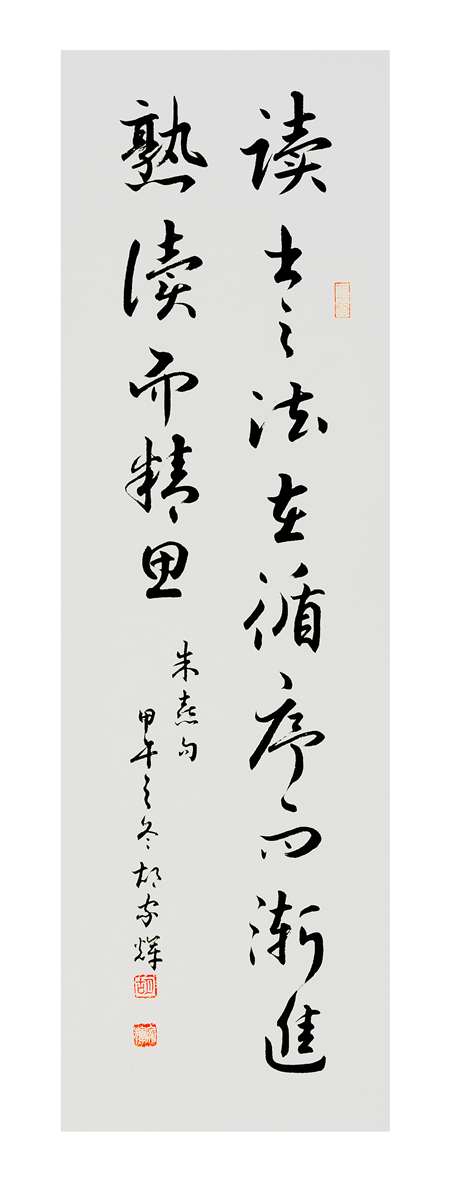 读书之法在循序而渐進
熟读而精思
朱熹句
甲午之冬胡家辉